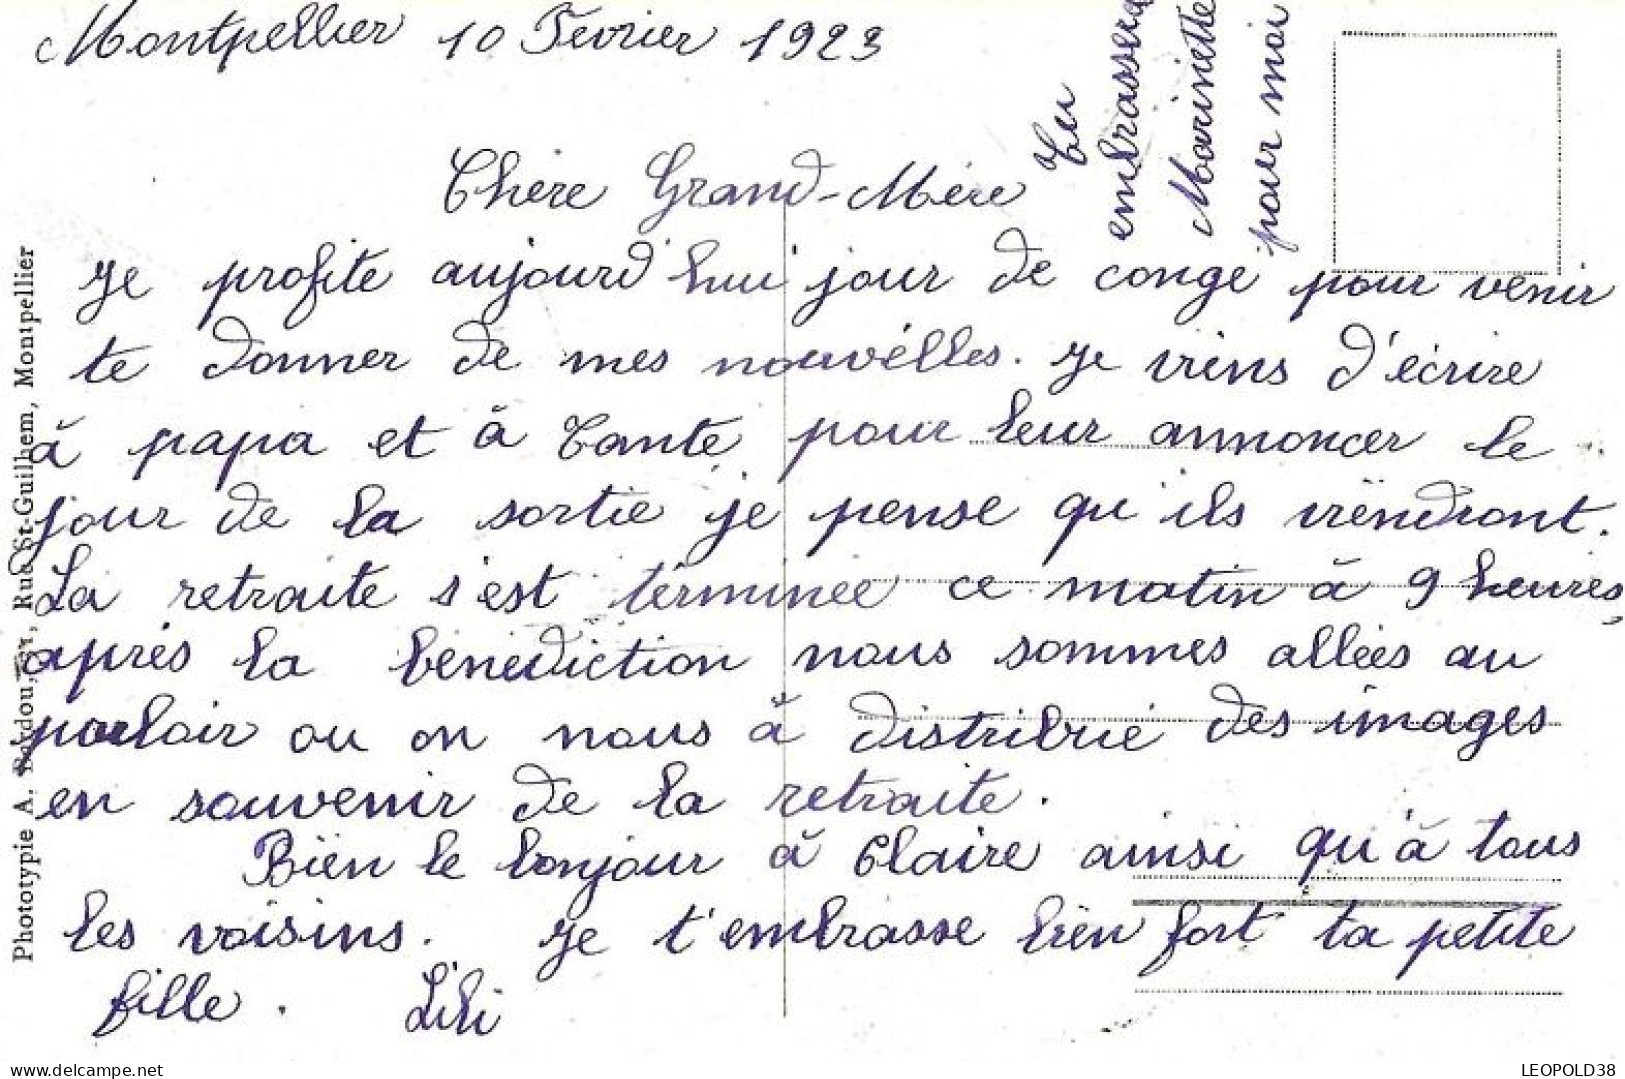 Montpellier 10 Fevrier 1923
Tu
embrassera
Marinette
pour moi
Chère Grand-Mère
Je profite aujourd'hui jour de conge pour venir
te donner de mes nouvélles. Je viens d'écrire
à papa et à Tante pour leur annoncer le
jour de la sortie je pense qu'ils viendront.
La retraite s'est terminée ce matin à 9 heures,
après la bénédiction nous sommes allées au
parloir ou on nous à distribué des images
en souvenir de la retraite.
Bien le bonjour à Claire ainsi qu'à tous
les voisins. Je t'embrasse bien fort ta petite
fille. Lili
Phototypie A. Bardou, Rue St-Guilhem, Montpellier
delcampe.net
LEOPOLD38